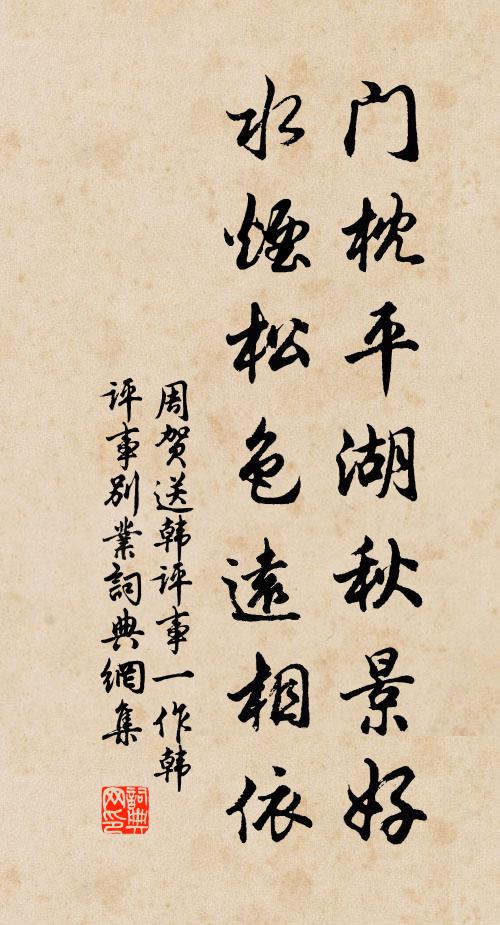 门枕平湖秋景好
水煙松色遠相依
周贺送韩评事一作韩
评事别業詞典網集
詞典网印